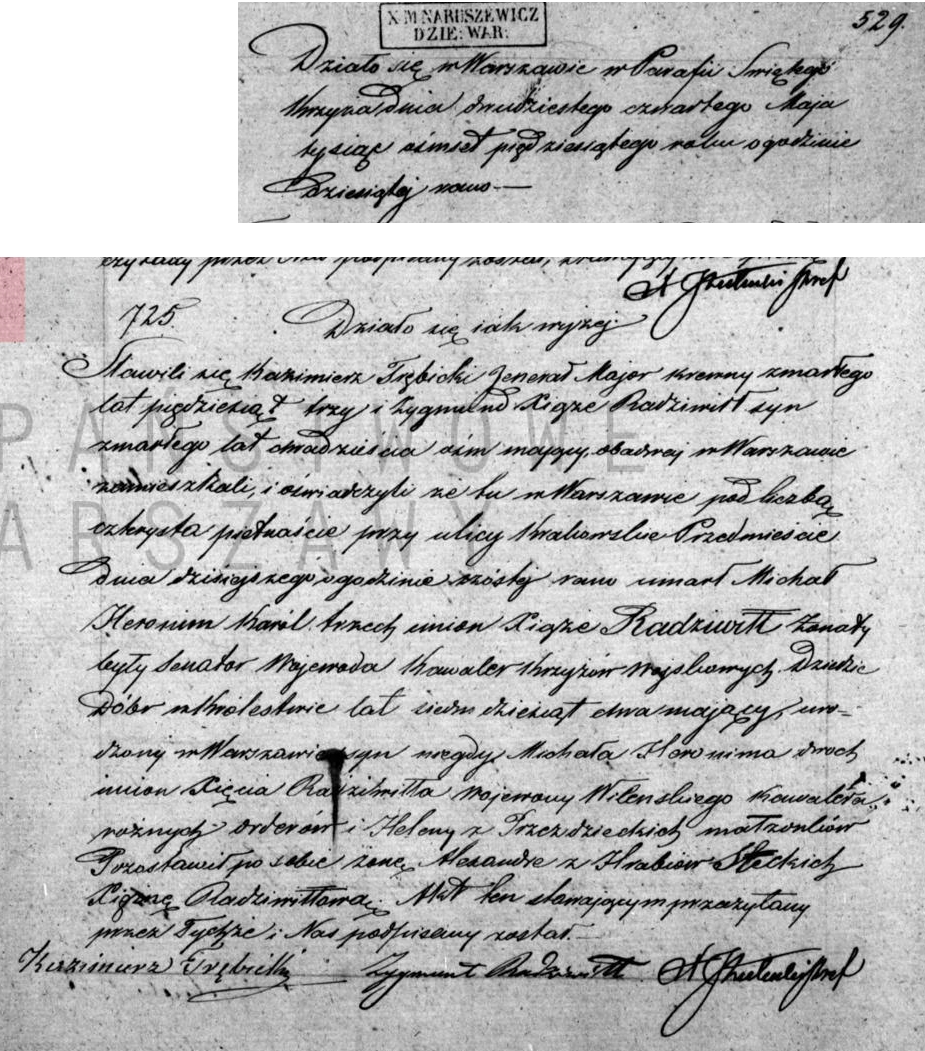 X M NARUSZEWICZ
DZIE: WAR:
529.
Działo się w Warszawie w Parafii Świętego
Krzyża dnia dwudziestego czwartego Maja
tysiąc ośmset pięćdziesiątego roku o godzinie
Dziesiątej rano.—
czytany przez
725.
Działo się iak wyżej
Stawili się Kazimierz Trębicki Jenerał Major krewny zmarłego
lat pięćdziesiąt trzy i Zygmund Xiąże Radziwiłł syn
zmarłego lat dwadzieścia ośm mający, obadwaj w Warszawie
zamieszkali, i oświadczyli że tu w Warszawie pod liczbą
czterysta piętnaście przy ulicy Krakowskie Przedmieście
Dnia dzisiajszego o godzinie szóstej rano umarł Michał
Heronim Karol trzech imion Xiąże Radziwiłł żonaty
były Senator Wojewoda Kawaler Krzyżów Wojskowych Dziedzic
Dóbr w Królestwie lat siedmdziesiąt dwa mający, uro-
dzony w Warszawie syn niegdy Michała Heronima dwóch
imion Xięcia Radziwiłła Wojewody Wileńskiego Kawalera
rożnych orderów i Heleny z Przezdzieckich małżonków
Pozostawił po sobie żonę Alexandrę z Hrabiów Steckich
Xiężnę Radziwiłłową. Akt ten stawającym przeczytany
przez Tychże i Nas podpisany został.—
Kazimierz Trębicki Zygmunt Radziwiłł
PAŃSTWOWE
WARSZAWY